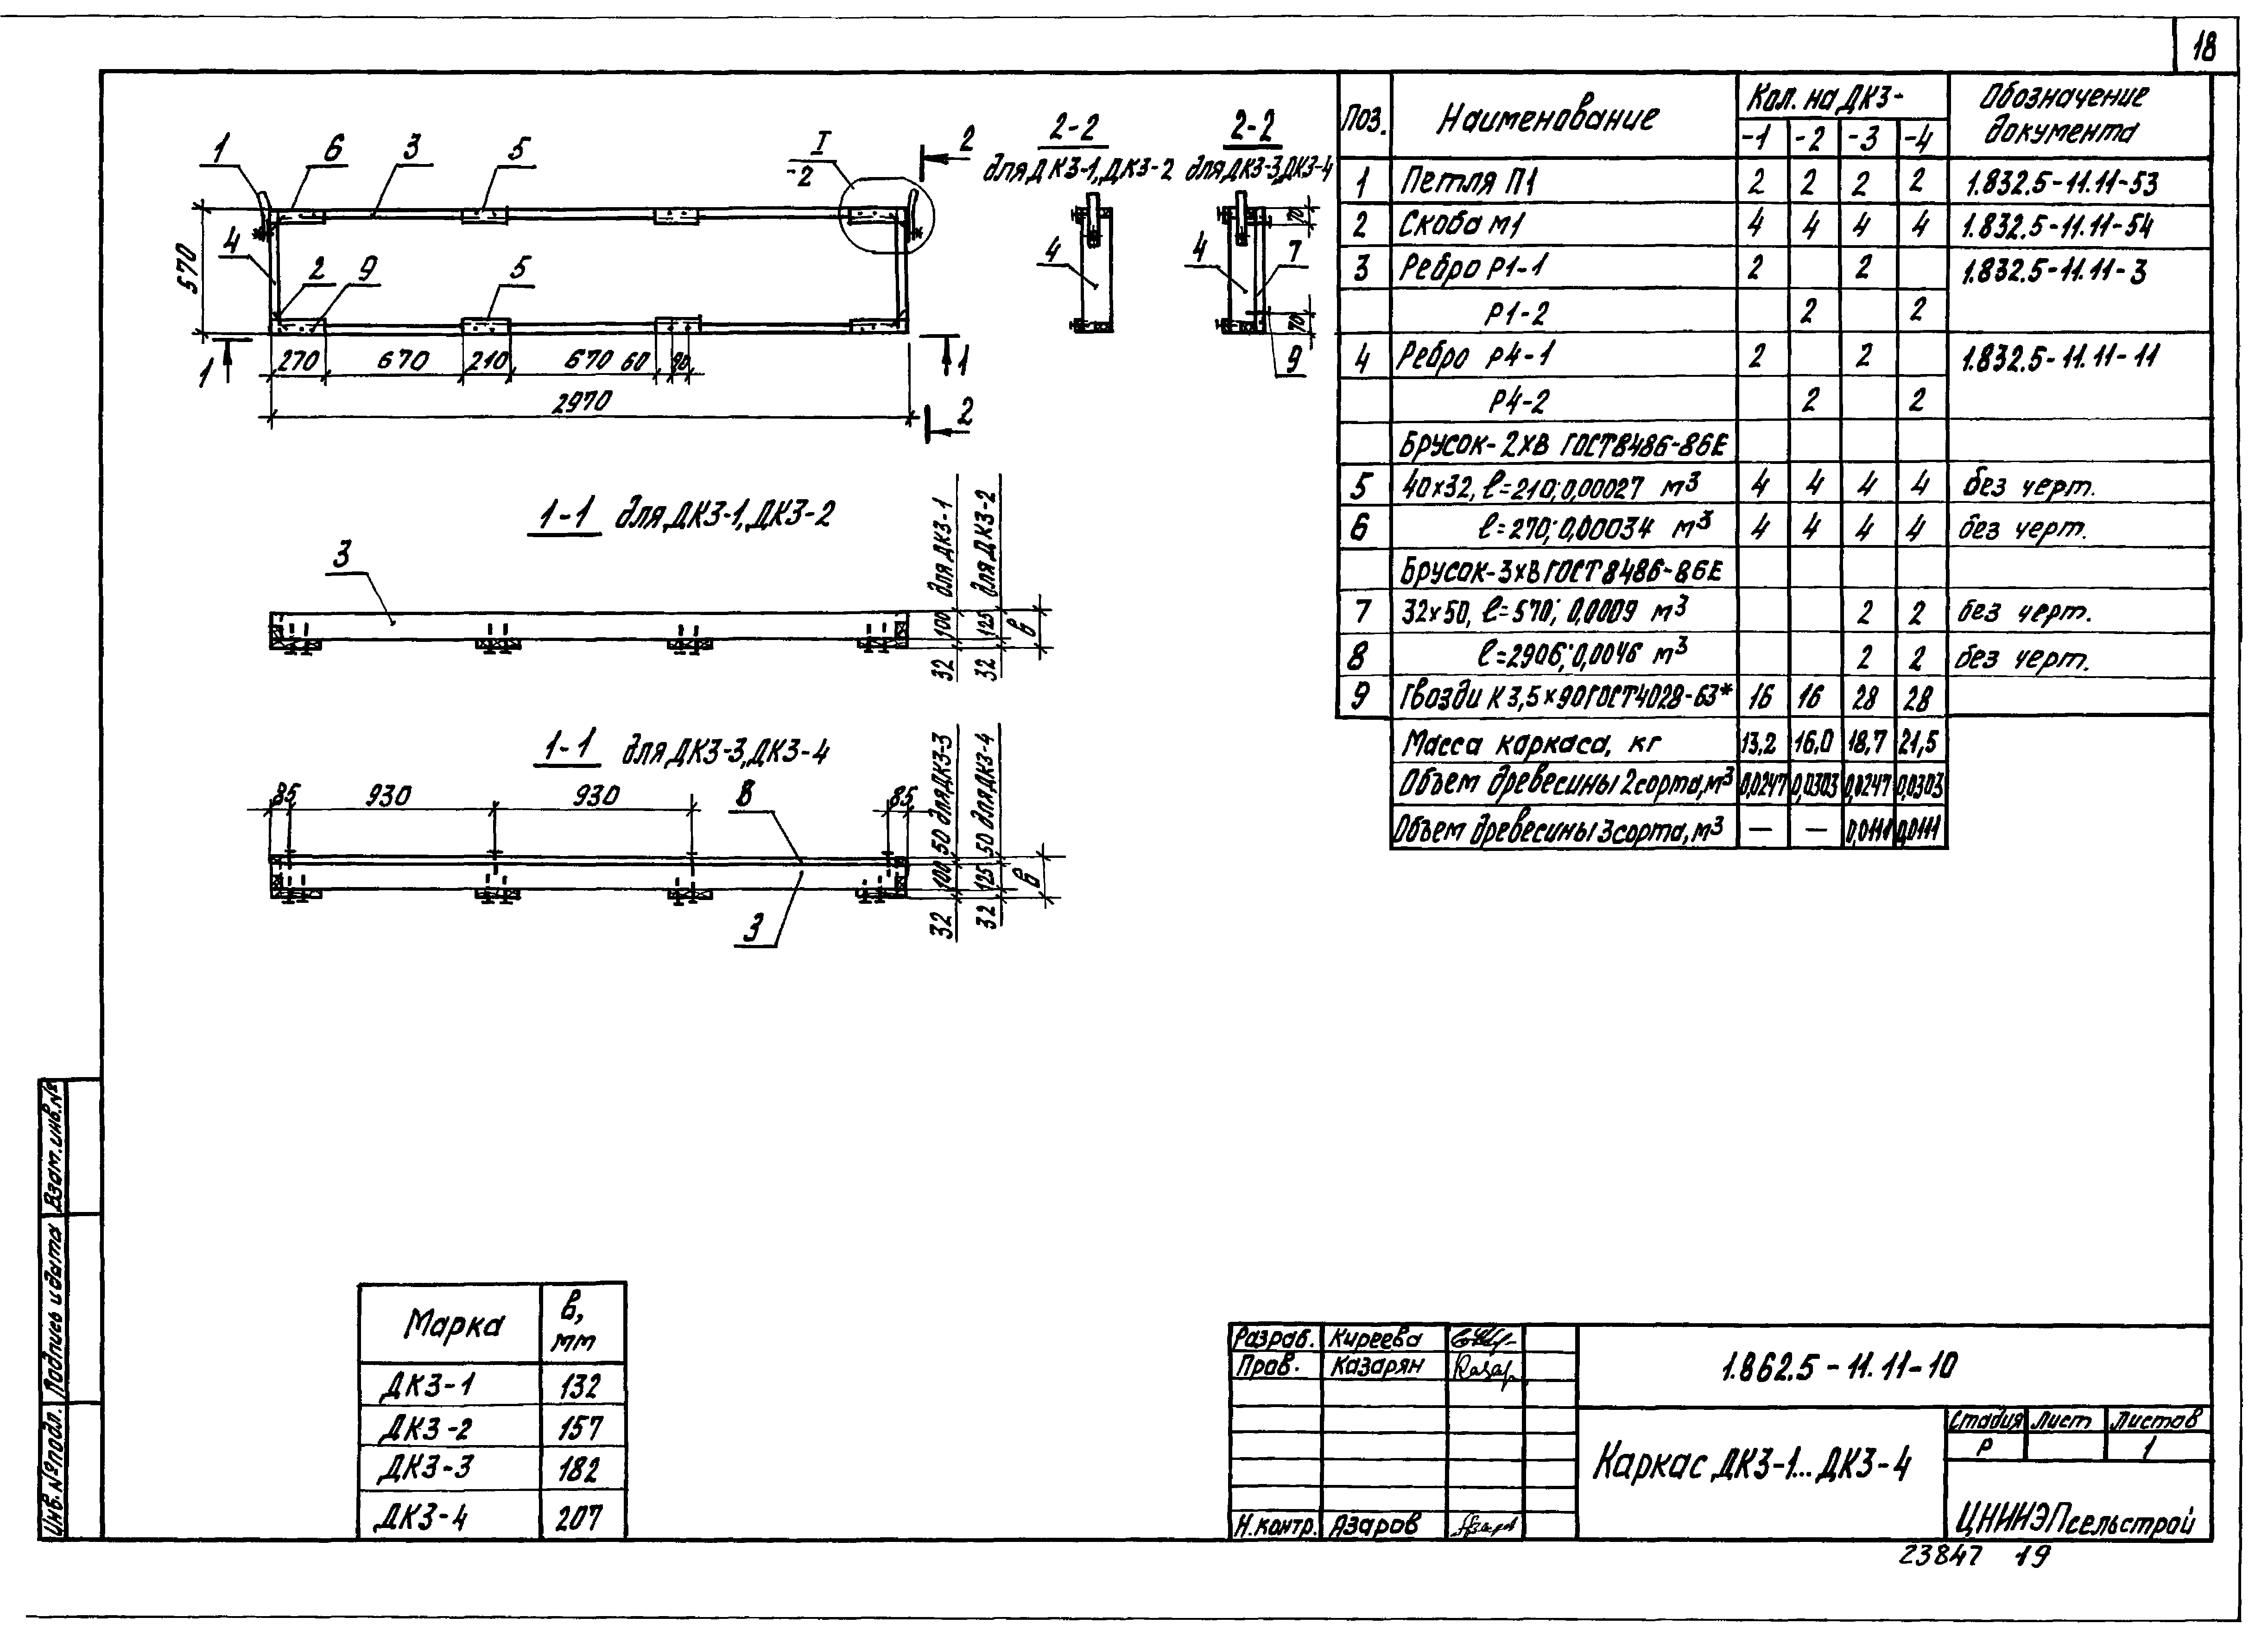 18
1 6 3 5 I -2 2
4 2 9 5
570
1 270 670 210 670 60 90 1
2970
2
2-2
для ДК3-1, ДК3-2
4
2-2
для ДК3-3, ДК3-4
4 7 70
70
9
1-1 для ДК3-1, ДК3-2
3
32 100 для ДК3-1
32 125 для ДК3-2
в
1-1 для ДК3-3, ДК3-4
85 930 930 8 85
3
32 100 50 для ДК3-3
32 125 50 для ДК3-4
в
Поз. Наименование Кол. на ДК3- Обозначение документа
-1 -2 -3 -4
1 Петля П1 2 2 2 2 1.832.5-11.11-53
2 Скоба М1 4 4 4 4 1.832.5-11.11-54
3 Ребро Р1-1 2 2 1.832.5-11.11-3
Р1-2 2 2
4 Ребро Р4-1 2 2 1.832.5-11.11-11
Р4-2 2 2
Брусок-2ХВ ГОСТ8486-86Е
5 40х32, ℓ=210; 0,00027 м3 4 4 4 4 без черт.
6 ℓ=270; 0,00034 м3 4 4 4 4 без черт.
Брусок-3хВ ГОСТ 8486-86Е
7 32х50, ℓ=570; 0,0009 м3 2 2 без черт.
8 ℓ=2906; 0,0046 м3 2 2 без черт.
9 Гвозди К 3,5х90 ГОСТ4028-63* 16 16 28 28
Масса каркаса, кг 13,2 16,0 18,7 21,5
Объем древесины 2 сорта, м3 0,0247 0,0303 0,0247 0,0303
Объем древесины 3 сорта, м3 — — 0,0111 0,0111
Марка в, мм
ДК3-1 132
ДК3-2 157
ДК3-3 182
ДК3-4 207
Инв. № подл. Подпись и дата Взам. инв. №
Разраб. Киреева
Пров. Казарян
Н.контр. Азаров
1.862.5-11.11-10
Каркас ДК3-1... ДК3-4
Стадия Лист Листов
Р 1
ЦНИИЭПсельстрой
23847 19